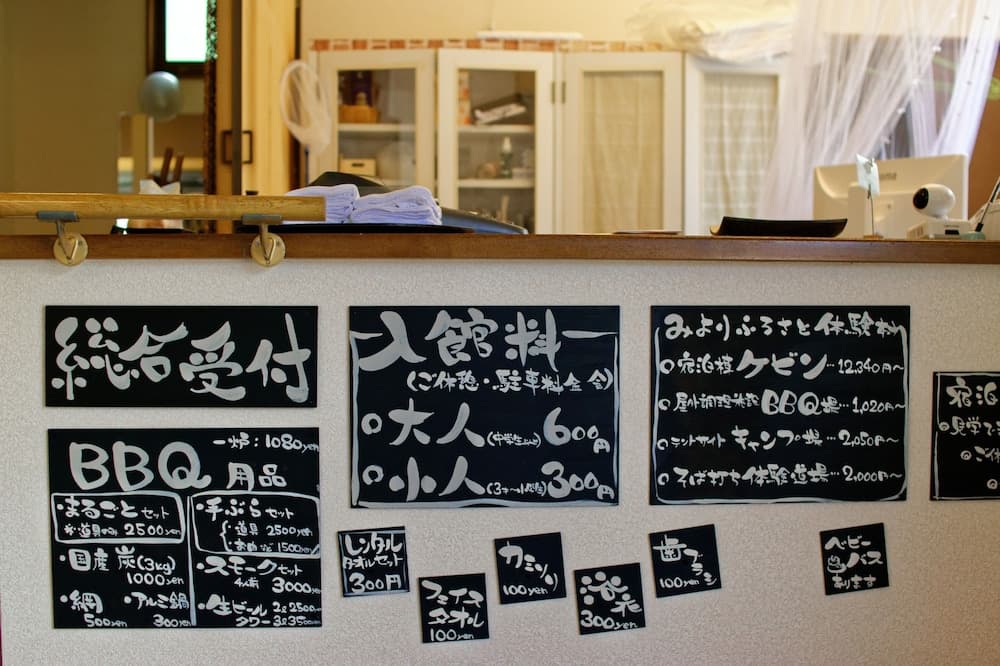 総合受付
入館料
(ご休憩・駐車料金含)
大人(中学生以上) 600円
小人(3才〜小学生) 300円
みよりふるさと体験村
宿泊棟 ケビン…12,340円〜
屋外調理施設 BBQ場…1,020円〜
テントサイト キャンプ場…2,050円〜
そば打ち体験道場…2,000円〜
宿泊
BBQ用品
一炉:1080yen
・まるごとセット
2500yen
・国産炭(3kg)
1000yen
・網
500yen
アルミ鍋
300yen
・手ぶらセット
・道具 2500yen
1500yen
・スモークセット
4人前 3000yen
・生ビール 2ℓ2500yen
タワー 3ℓ35
レンタル
タオルセット
300円
フェイス
タオル
100yen
カミソリ
100yen
浴衣
300yen
歯ブラシ
100yen
ベビー
バス
あります